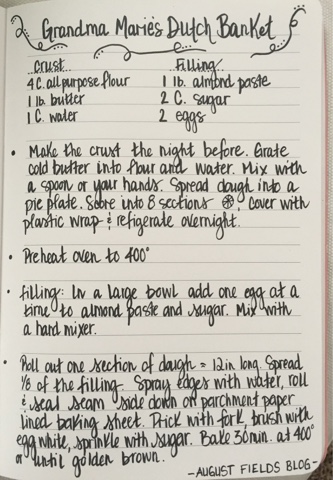 Grandma Marie's Dutch Banket
Crust
4 C. all purpose flour
1 lb. butter
1 C. water
Filling
1 lb. almond paste
2 C. sugar
2 eggs
• Make the crust the night before. Grate
cold butter into flour and water. Mix with
a spoon or your hands. Spread dough into a
pie plate. Score into 8 sections. Cover with
plastic wrap & refigerate overnight.
• Preheat oven to 400°
• Filling: In a large bowl add one egg at a
time to almond paste and sugar. Mix with
a hand mixer.
• Roll out one section of dough = 12 in long. Spread
1/8 of the filling. Spray edges with water, roll
& seal seam side down on parchment paper
lined baking sheet. Prick with fork, brush with
egg white, sprinkle with sugar. Bake 30 min. at 400°
or until golden brown.
- AUGUST FIELDS BLOG -